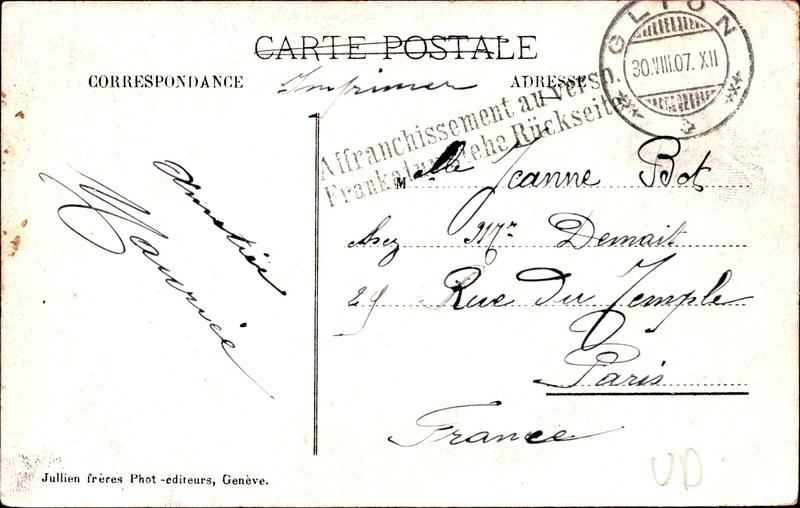 CARTE POSTALE
CORRESPONDANCE
Imprimer
ADRESSE
GLION
30.VIII.07. XII
Affranchissement au verso.
Frankatur siehe Rückseite
Melle Jeanne Bot
chez Mr Demait
29 Rue du Temple
Paris
France
Amitiés
Maurice
Jullien frères Phot-éditeurs, Genève.
VD